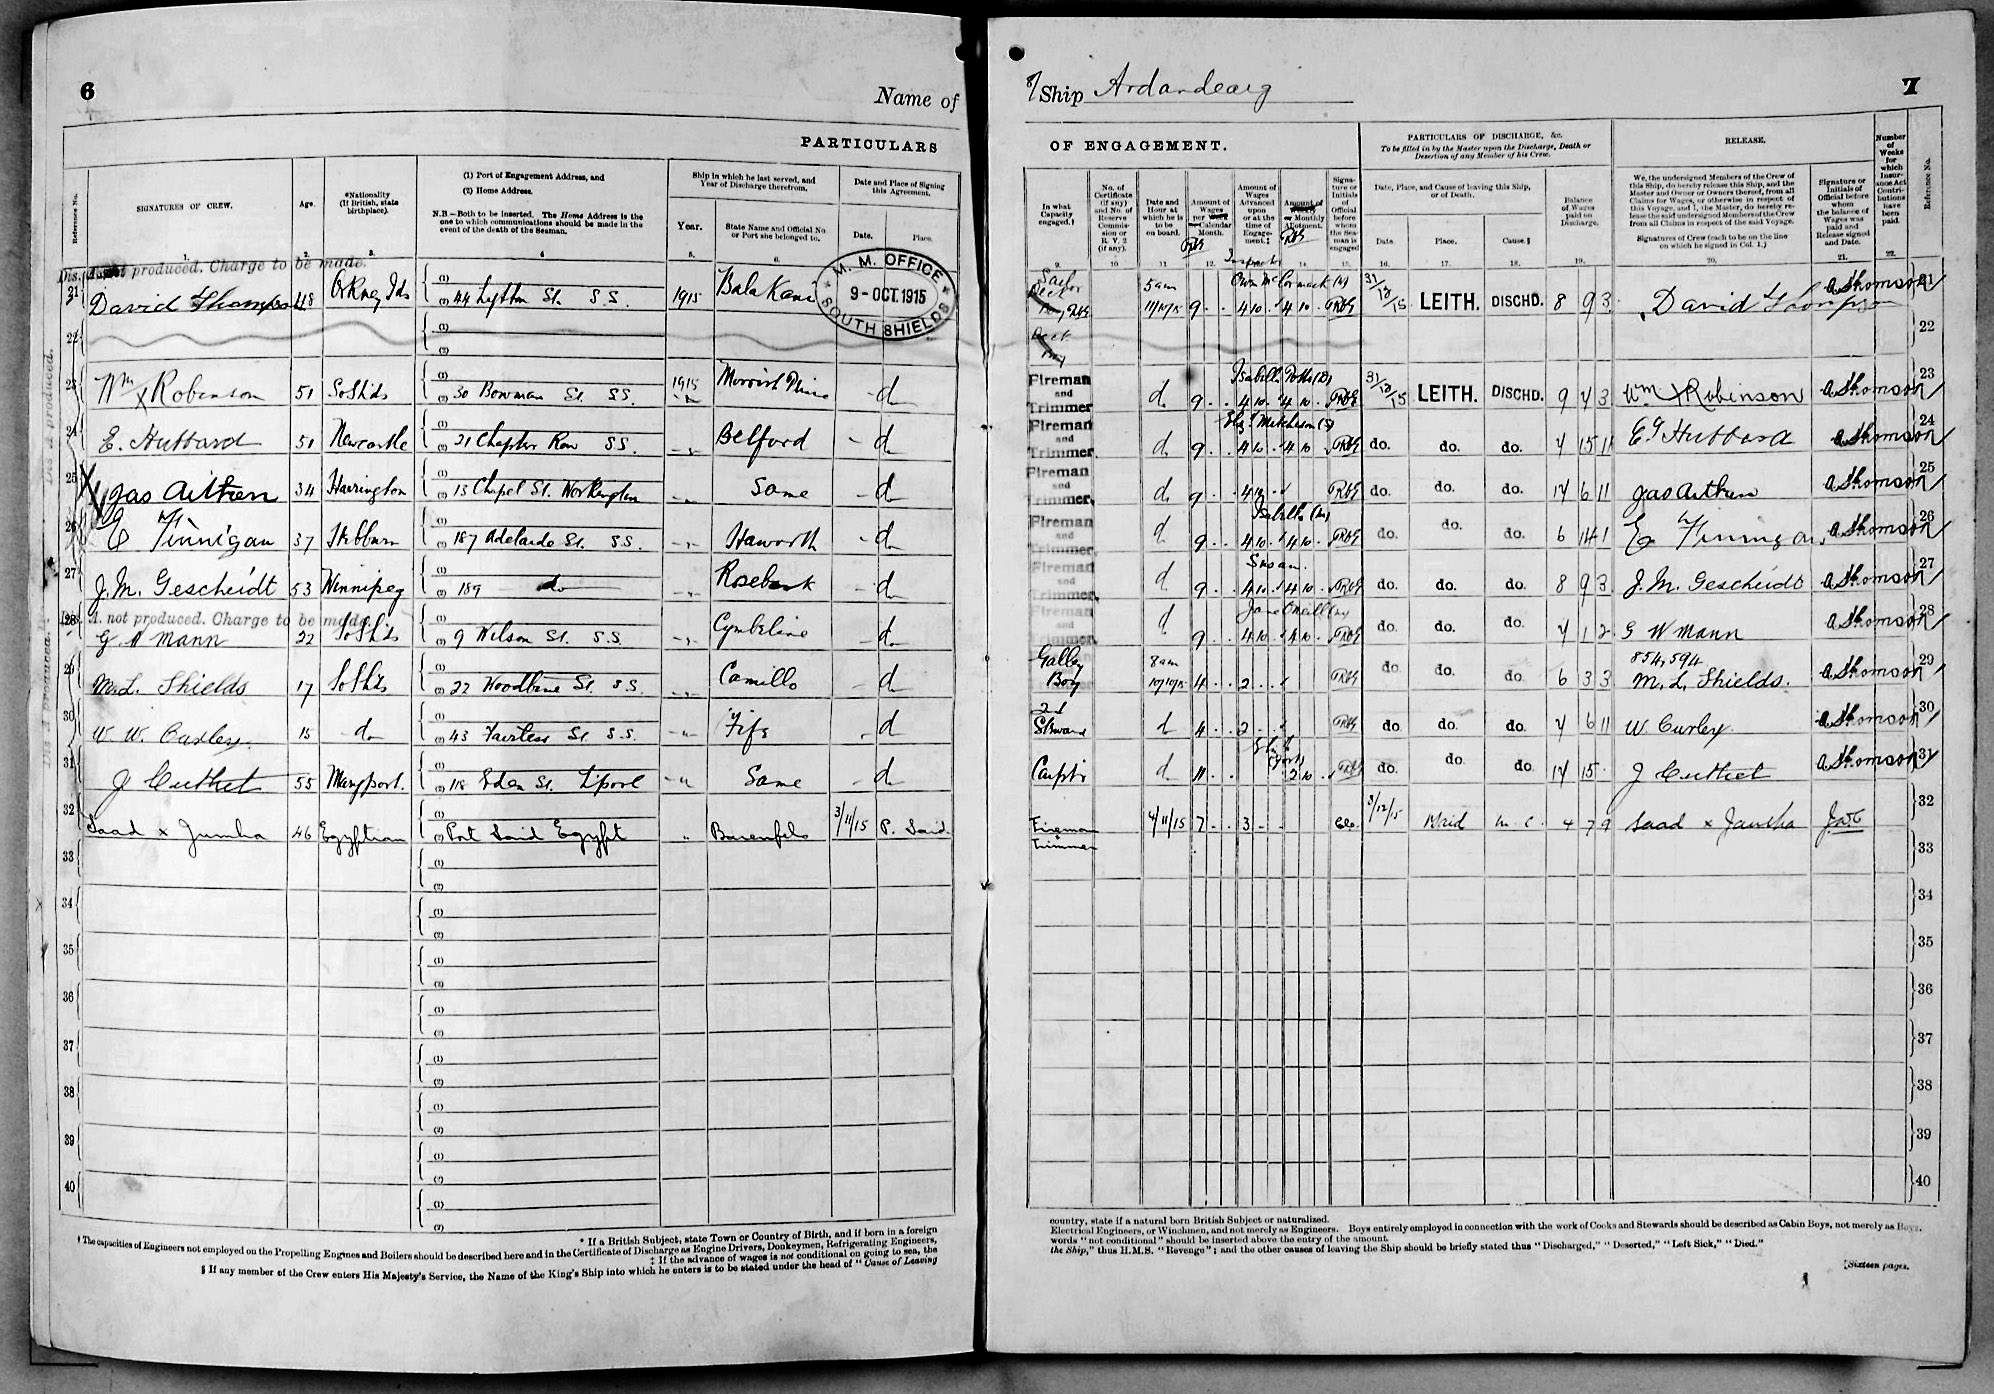 6
Name of
PARTICULARS
Reference No.
SIGNATURES OF CREW.
Age.
*Nationality (If British, state birthplace).
(1) Port of Engagement Address, and
(2) Home Address.
N.B.—Both to be inserted. The Home Address is the one to which communications should be made in the event of the death of the Seaman.
Ship in which he last served, and Year of Discharge therefrom.
Year.
State Name and Official No. or Port she belonged to.
Date and Place of Signing this Agreement.
Date.
Place.
1. 2. 3. 4 5. 6.
M. M. OFFICE
9-OCT.1915
SOUTH SHIELDS
Dis. A. not produced. Charge to be made.
21 David Thompson 48 Orkney Ids (1) (2) 44 Lytton St. S.S. 1915 Balakani
22 (1) (2)
23 Wm X Robinson 51 So Shds (1) (2) 30 Bowman St. S.S. 1915 d
24 E. Hubbard 51 Newcastle (1) (2) 21 Chapter Row S.S. Belford d
25 Jas Aitken 34 Harrington (1) (2) 13 Chapel St. Workington Same d
26 E Finnigan 37 Hebburn (1) (2) 187 Adelaide St. S.S. Haworth d
27 J.M. Gescheidt 53 Winnipeg (1) (2) 189 do Rosebank d
Dis. A. not produced. Charge to be made.
28 G W Mann 22 So Shds (1) (2) 9 Wilson St. S.S. Cymbeline d
29 M.L. Shields 17 So Shds (1) (2) 22 Woodbine St. S.S. Camillo d
30 W. W. Curley. 15 do (1) (2) 43 Fairless St. S.S. Fife d
31 J Cuthet 55 Maryport. (1) (2) 118 Eden St. L'pool Same d
32 Saad x Jumha 46 Egyptian (1) (2) Port Said Egypt " Barenfels 3/11/15 P. Said
33 (1) (2)
34 (1) (2)
35 (1) (2)
36 (1) (2)
37 (1) (2)
38 (1) (2)
39 (1) (2)
40 (1) (2)
* If a British Subject, state Town or Country of Birth, and if born in a foreign
† The capacities of Engineers not employed on the Propelling Engines and Boilers should be described here and in the Certificate of Discharge as Engine Drivers, Donkeymen, Refrigerating Engineers,
‡ If the advance of wages is not conditional on going to sea, the
§ If any member of the Crew enters His Majesty's Service, the Name of the King's Ship into which he enters is to be stated under the head of "Cause of Leaving
Ship Ardandearg
7
OF ENGAGEMENT.
PARTICULARS OF DISCHARGE, &c.
To be filled in by the Master upon the Discharge, Death or Desertion of any Member of his Crew.
RELEASE.
Number of Weeks for which Insurance Act Contributions have been paid.
Reference No.
In what Capacity engaged.†
No. of Certificate (if any) and No. of Reserve Commission or R. V. 2 (if any).
Date and Hour at which he is to be on board.
Amount of Wages per Week or Calendar Month.
Amount of Wages Advanced upon or at the time of Engagement.‡
Amount of Weekly or Monthly Allotment.
Signature or Initials of Official before whom the Seaman is engaged
Date, Place, and Cause of leaving this Ship, or of Death.
Date.
Place.
Cause.§
Balance of Wages paid on Discharge.
We, the undersigned Members of the Crew of this Ship, do hereby release this Ship, and the Master and Owner or Owners thereof, from all Claims for Wages, or otherwise in respect of this Voyage, and I, the Master, do hereby release the said undersigned Members of the Crew from all Claims in respect of the said Voyage.
Signatures of Crew (each to be on the line on which he signed in Col. 1.)
Signature or Initials of Official before whom the balance of Wages was paid and Release signed and Date.
9. 10 11. 12. 14. 15. 16. 17. 18. 19. 20. 21. 22.
Sailor 5 am 11/10/15 9 Owen McCormack 4 10 4 10 31/12/15 LEITH. DISCHD. 8 9 3 David Thompson A Thomson 21
22
Fireman and Trimmer d 9 4 10 4 10 31/12/15 LEITH. DISCHD. 9 4 3 Wm X Robinson A Thomson 23
Fireman and Trimmer d 9 4 10 4 10 do. do. do. 4 15 11 E Hubbard A Thomson 24
Fireman and Trimmer. d 9 4 10 do. do. do. 14 6 11 Jas Aitken A Thomson 25
Fireman and Trimmer. d 9 Isabella 4 10 4 10 do. do. do. 6 14 1 E Finnigan A Thomson 26
Fireman and Trimmer. d 9 Susan 4 10 4 10 do. do. do. 8 9 3 J. M. Gescheidt A Thomson 27
Fireman and Trimmer. d 9 Jane O'Neill 4 10 4 10 do. do. do. 4 1 2 G W Mann A Thomson 28
Galley Boy 8 am 10/10/15 4 2 do. do. do. 6 3 3 854,594 M. L. Shields. A Thomson 29
2nd Steward d 4 2 do. do. do. 4 6 11 W Curley. A Thomson 30
Carptr d 11 2 10 do. do. do. 14 15 J Cuthet A Thomson 31
Fireman & Trimmer 4/11/15 7 3 3/12/15 4 7 9 Saad x Jumha 32
33
34
35
36
37
38
39
40
country, state if a natural born British Subject or naturalized.
Electrical Engineers, or Winchmen, and not merely as Engineers. Boys entirely employed in connection with the work of Cooks and Stewards should be described as Cabin Boys, not merely as Boys.
words "not conditional" should be inserted above the entry of the amount.
the Ship," thus H.M.S. "Revenge"; and the other causes of leaving the Ship should be briefly stated thus "Discharged," "Deserted," "Left Sick," "Died."
[Sixteen pages.